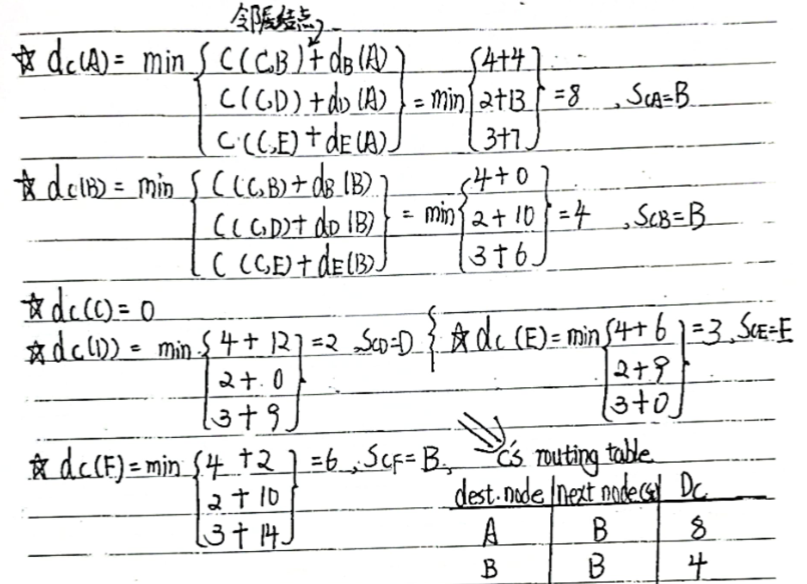 邻居结点
☆ dc(A) = min { C(C,B) + dB(A)
C(C,D) + dD(A)
C(C,E) + dE(A) } = min { 4+4
2+13
3+7 } = 8 , SCA=B
☆ dc(B) = min { C(C,B) + dB(B)
C(C,D) + dD(B)
C(C,E) + dE(B) } = min { 4+0
2+10
3+6 } = 4 , SCB=B
☆ dc(C) = 0
☆ dc(D) = min { 4+12
2+0
3+9 } = 2 , SCD=D
☆ dc(E) = min { 4+6
2+9
3+0 } = 3, SCE=E
☆ dc(F) = min { 4+2
2+10
3+14 } = 6 , SCF=B,
C's routing table
dest. node | next node(s) | Dc
A | B | 8
B | B | 4